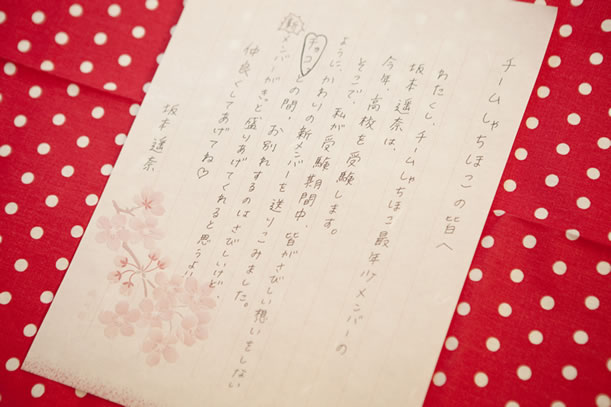 チームしゃちほこの皆へ
わたくし、チームしゃちほこ最年少メンバーの
坂本遥奈は、
今年、高校を受験します。
そこで、私が受験期間中、皆がさびしい想いをしない
ように、かわりの新メンバーを送りこみました。
チョコとの間、お別れするのはさびしいけど、
新メンバーがきっと盛りあげてくれると思うよ!
仲良くしてあげてね♡
坂本遥奈